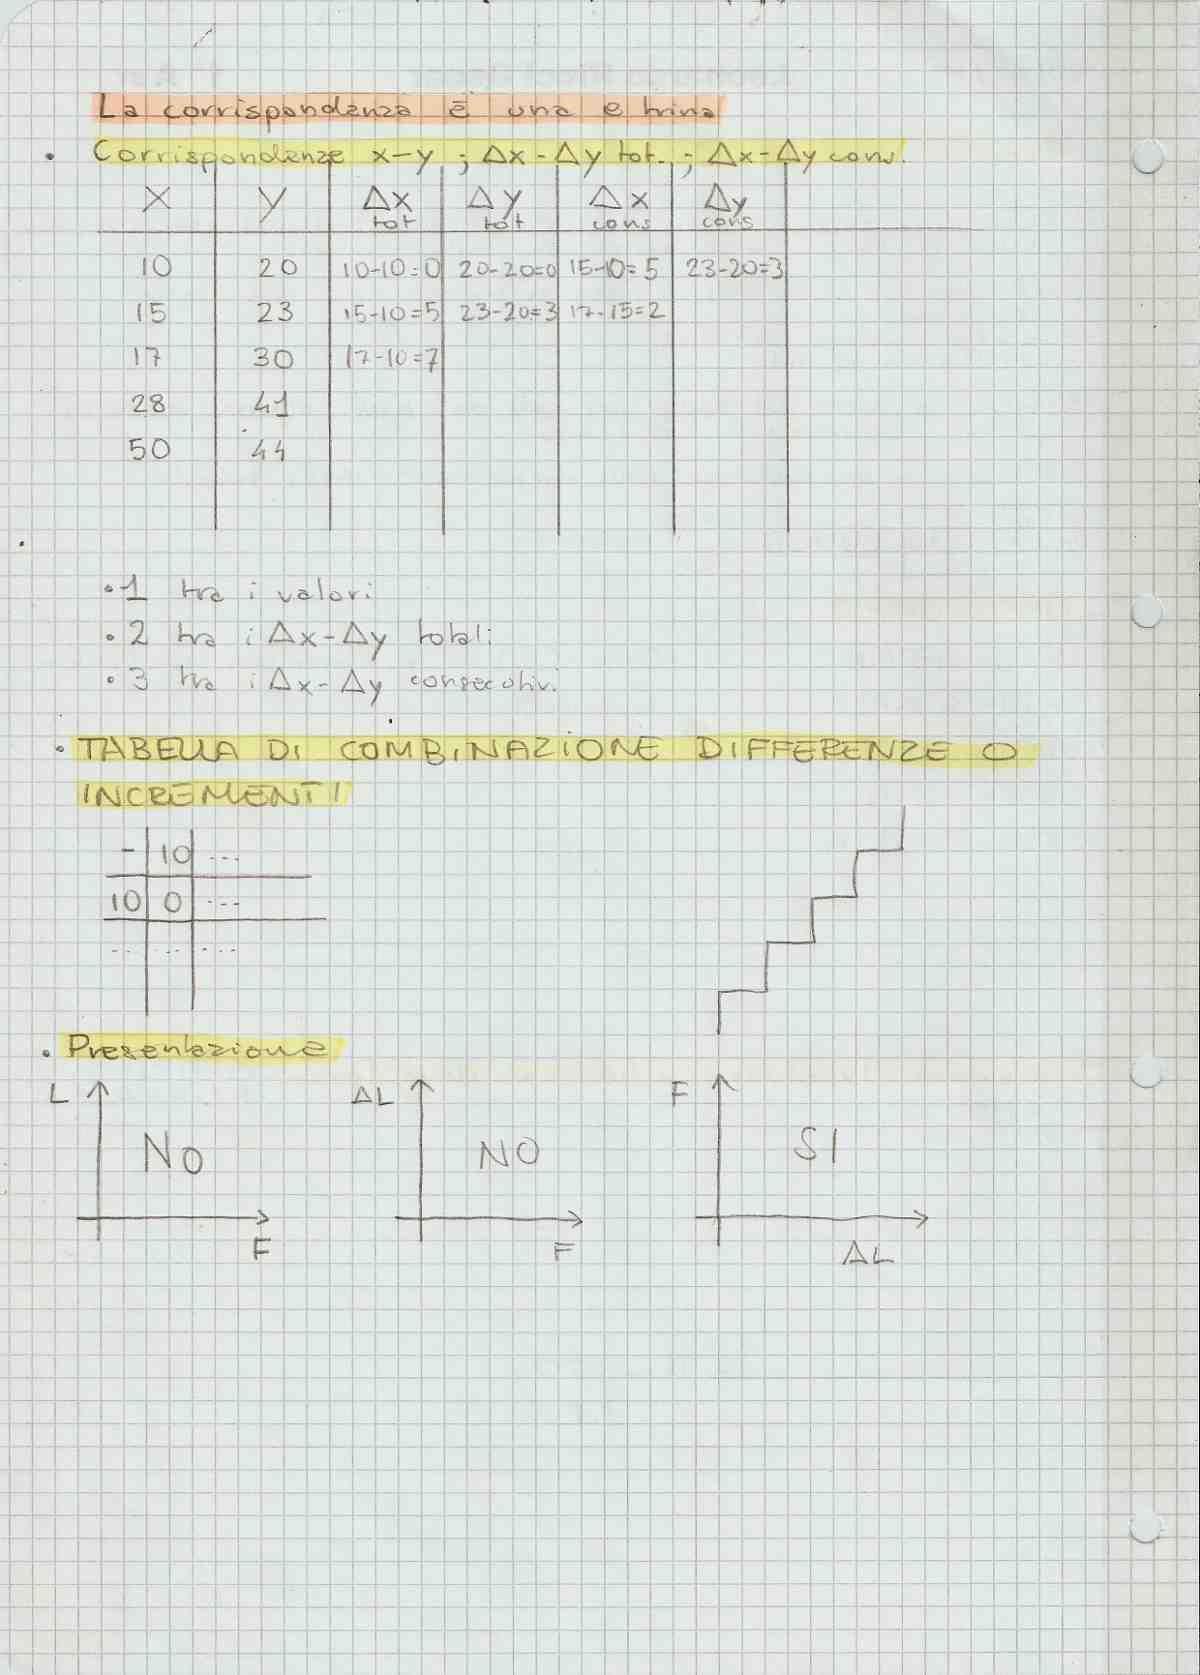 La corrispondenza è una e trina
• Corrispondenze x-y ; Δx-Δy tot. ; Δx-Δy cons.
X Y Δx tot Δy tot Δx cons Δy cons
10 20 10-10=0 20-20=0 15-10=5 23-20=3
15 23 15-10=5 23-20=3 17-15=2
17 30 17-10=7
28 41
50 44
• 1 tra i valori
• 2 tra i Δx-Δy totali
• 3 tra i Δx-Δy consecutivi
• TABELLA DI COMBINAZIONE DIFFERENZE O
INCREMENTI
- 10 ...
10 0 ...
... ... ...
• Presentazione
L NO F
ΔL NO F
F SI ΔL